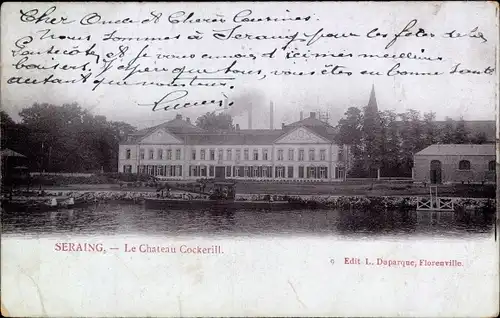 Cher Oncle et Chères Cousines
Nous sommes à Seraing pour les fêtes de la
Pentecôte, et je vous envoie d'ici mes meilleurs
baisers. J'espère que tous, vous êtes en bonne santé
autant que moi.
Lucien
SERAING, — Le Chateau Cockerill.
9 Edit L. Duparque, Florenville.